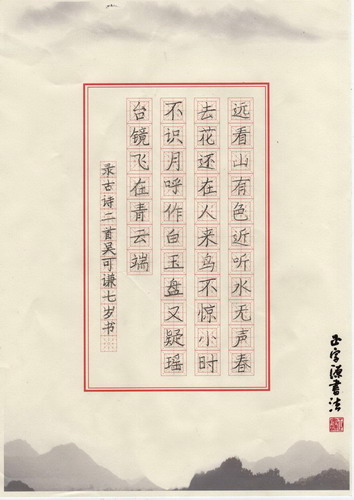 远看山有色近听水无声春
去花还在人来鸟不惊小时
不识月呼作白玉盘又疑瑶
台镜飞在青云端
录古诗二首吴可谦七岁书
正字源书法